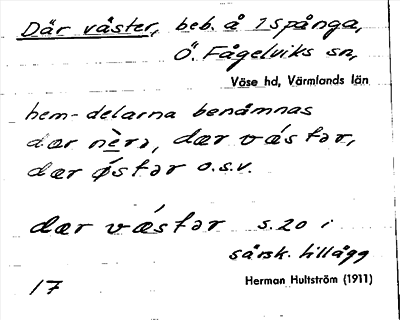 Där väster, beb. å 1 Spånga,
Ö. Fågelviks sn,
Väse hd, Värmlands län
hem-delarna benämnas
dær nèrə, dær vǽstər,
dær ǿstər o.s.v.
dær vǽstər s. 20 i
särsk. tillägg
17 Herman Hultström (1911)